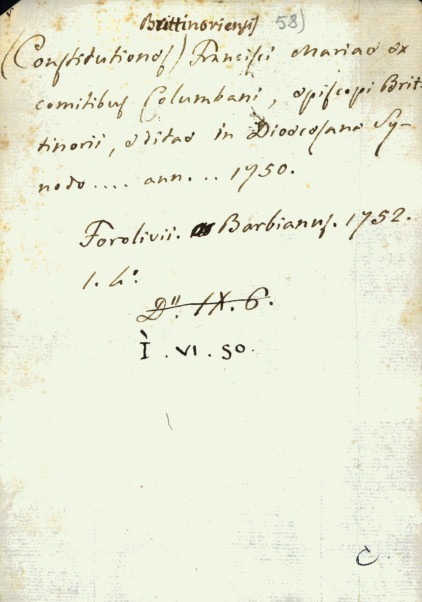 Brittinoriensis 58)
(Constitutiones) Francisci Mariae ex
comitibus Columbani, episcopi Brit-
tinorii, editae in Dioecesana Sy-
nodo .... ann... 1750.
Forolivii. Barbianus. 1752.
1. 4°.
D''. IX. 6.
I. VI. 50.
C.